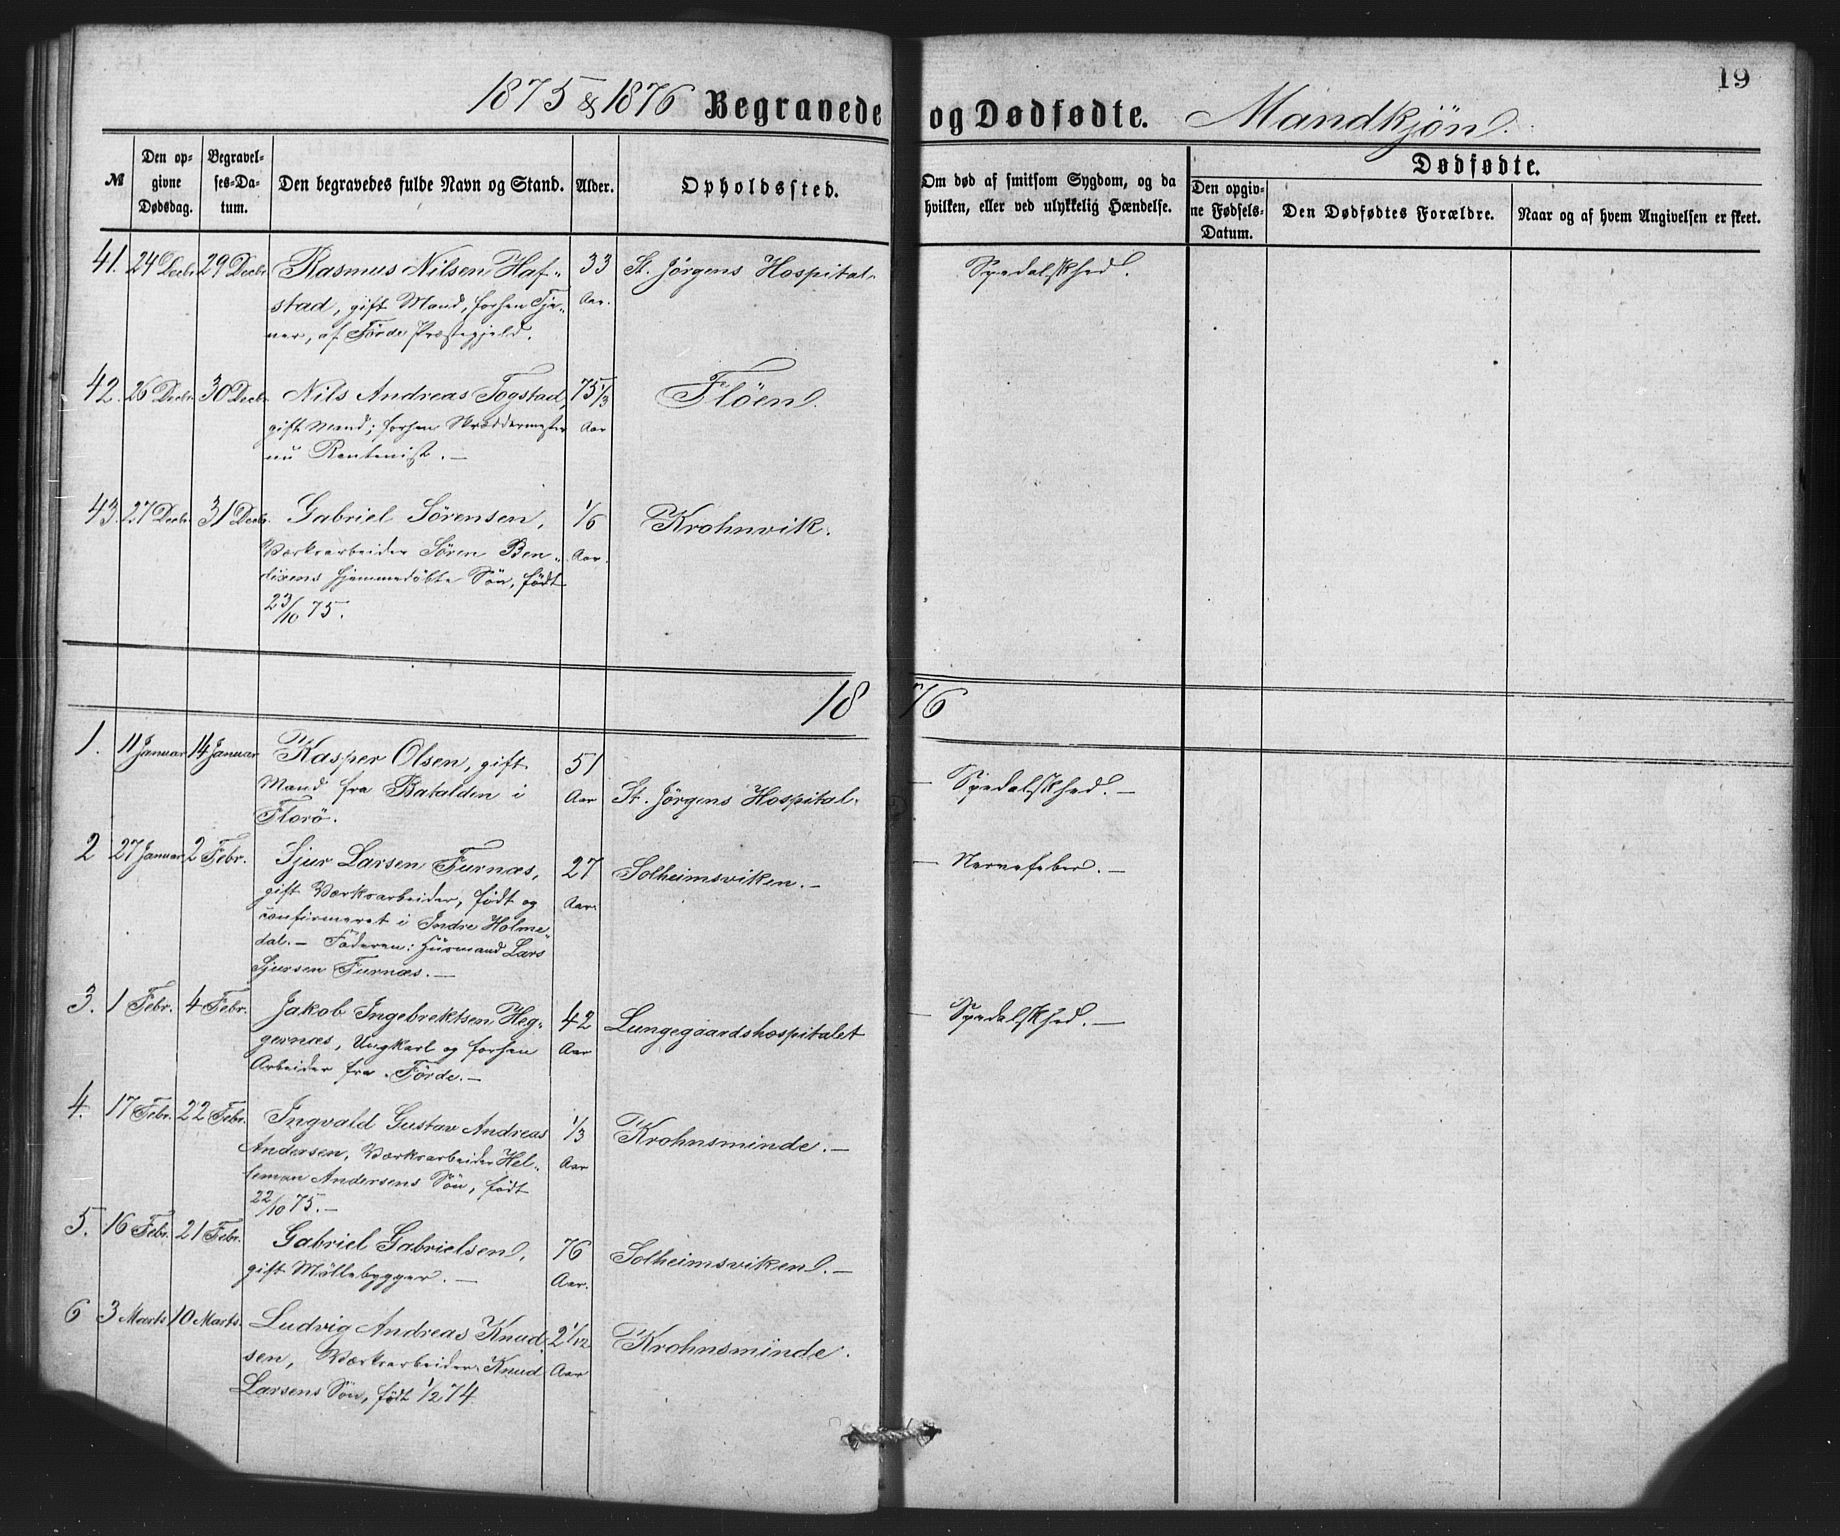 19
1875 & 1876 Begravede og Dødfødte. Mandkjøn.
№
Den opgivne Dødsdag.
Begravelses-Datum.
Den begravedes fulde Navn og Stand.
Alder.
Opholdssted.
Om død af smitsom Sygdom, og da hvilken, eller ved ulykkelig Hændelse.
Dødfødte.
Den opgivne Fødsels-Datum.
Den Dødfødtes Forældre.
Naar og af hvem Angivelsen er skeet.
41. 24 Decbr. 29 Decbr. Rasmus Nilsen Haf- 33 St. Jørgens Hospital. Spedalskhed.
stad, gift Mand, forhen Tje- Aar.
ner, af Førde Præstegjeld.
42. 26 Decbr. 30 Decbr. Nils Andreas Togstad, 75 1/3 Fløen.
gift Mand; forhen Skræddermester Aar
nu Rentenist. —
43. 27 Decbr. 31 Decbr. Gabriel Sørensen, 1/6 Krohnvik.
Værksarbeider Søren Ben- Aar.
dixens hjemmedøbte Søn, født
23/10 75.
1876
1. 11 Januar 14 Januar Kasper Olsen, gift 51
Mand fra Batalden i Aar St. Jørgens Hospital. — Spedalskhed. —
Florø.
2 27 Januar 2 Febr. Sjur Larsen Furnæs, 27 Solheimsviken. — — Nervefeber. —
gift Værksarbeider, født og Aar.
confirmeret i Indre Holme-
dal. — Faderen: Husmand Lars
Sjursen Furnæs. —
3. 1 Febr. 4 Febr. Jakob Ingebrektsen Heg- 42 Lungegaardshospitalet — Spedalskhed. —
gernæs, Ungkarl og forhen Aar
Arbeider fra Førde. —
4. 17 Febr. 22 Febr. Ingvald Gustav Andreas 1/3 Krohnsminde. —
Andersen, Værksarbeider Hel- Aar
leman Andersens Søn, født
22/10 75. —
5. 16 Febr. 21 Febr. Gabriel Gabrielsen, 76 Solheimsviken. —
gift Møllebygger. — Aar.
6 3 Marts 10 Marts. Ludvig Andreas Knud- 2 1/12 Krohnsminde.
sen, Værksarbeider Knud Aar
Larsens Søn, født 1/2 74